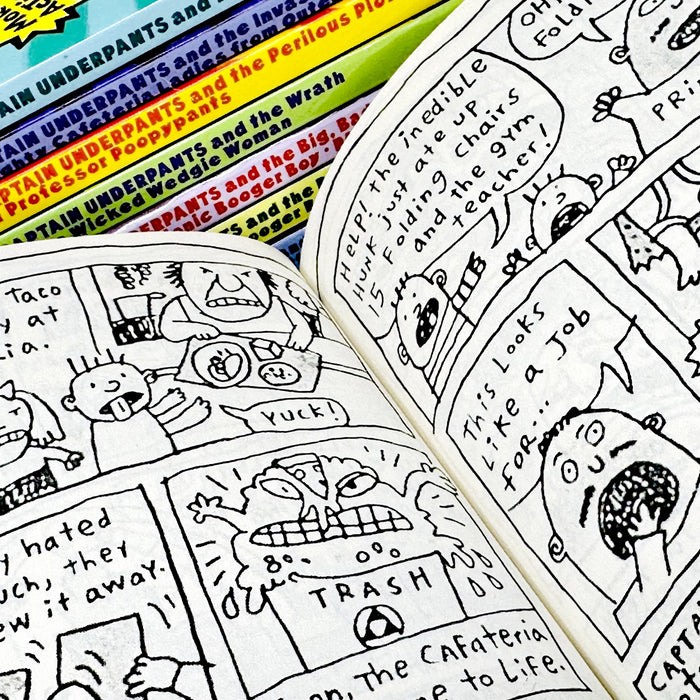 TAIN UNDERPANTS and
TAIN UNDERPANTS and the Inva
ghty Cafeteria Ladies from Oute
APTAIN UNDERPANTS and the Perilous Plo
Professor Poopypants
CAPTAIN UNDERPANTS and the Wrath
Wicked Wedgie Woman
ERPANTS and the Big, Ba
onic Booger Boy
TS and the
ooger
Taco
y at
ia.
YUCK!
y hated
uch, they
ew it away.
TRASH
on, the CAFeteria
me to LiFe.
HELP! the inedible
HUNK just ate up
15 Folding chairs
and the gym
teacher!
OH
FoLd
PRi
This Looks
Like a Job
FOR...
CAPTA